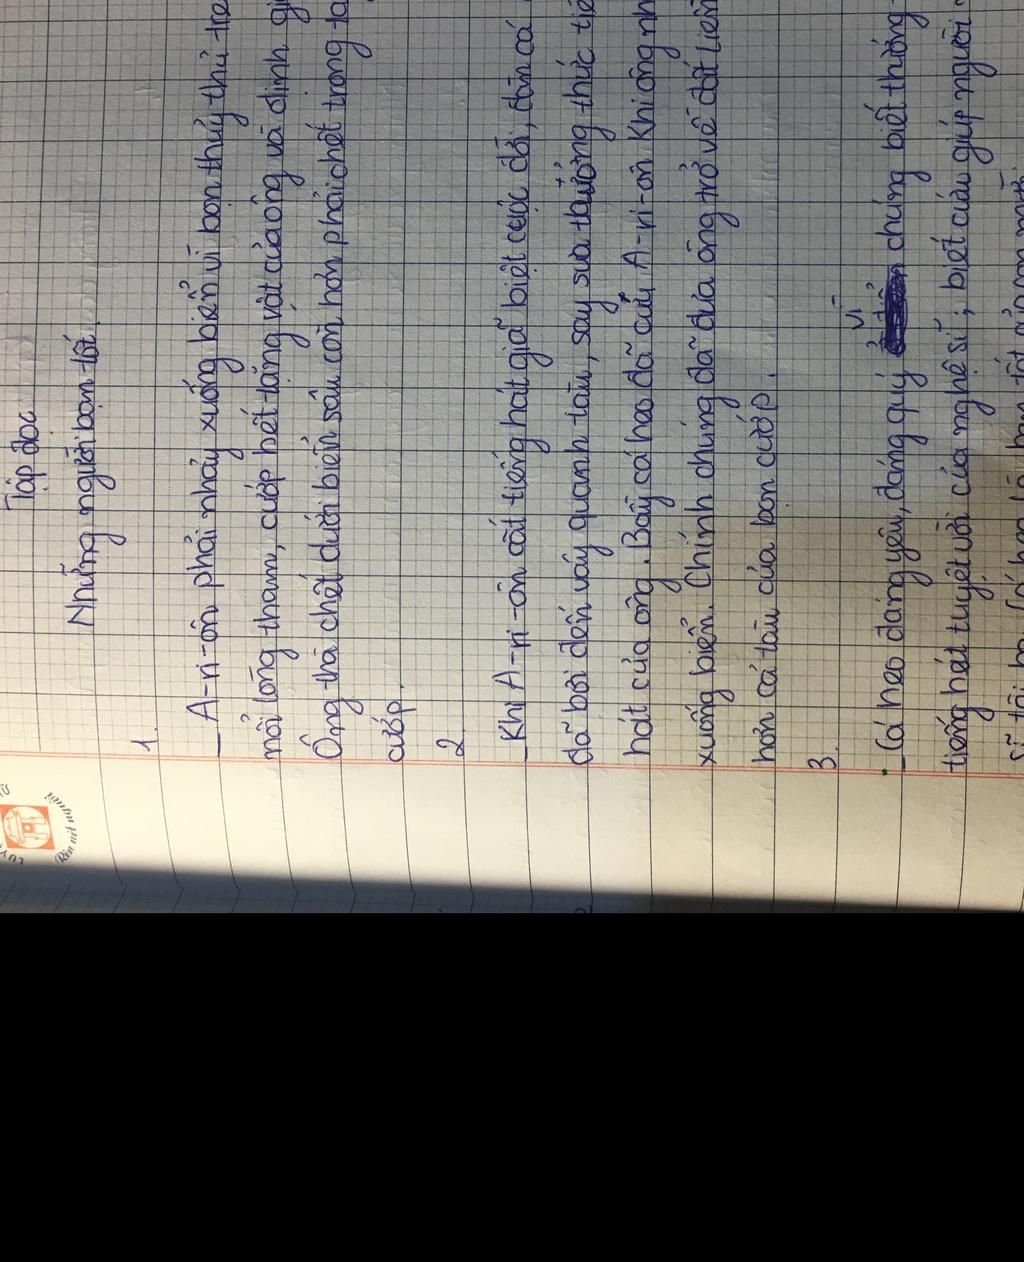 Tập đọc
Những người bạn tốt.
1.
_ A-ri-ôn phải nhảy xuống biển vì bọn thủy thủ
nổi lòng tham, cướp hết tặng vật của ông và định
Ông thà chết dưới biển sâu còn hơn phải chết trong
cướp.
2
_ Khi A-ri-ôn cất tiếng hát giã biệt cuộc đời, đàn cá
đã bơi đến vây quanh tàu, say sưa thưởng thức
hát của ông. Bầy cá heo đã cứu A-ri-ôn khi ông
xuống biển. Chính chúng đã đưa ông trở về đất liền
hơn cả tàu của bọn cướp.
3.
_ Cá heo đáng yêu, đáng quý vì chúng biết thưởng
tiếng hát tuyệt vời của nghệ sĩ; biết cứu giúp người
Rèn nét người